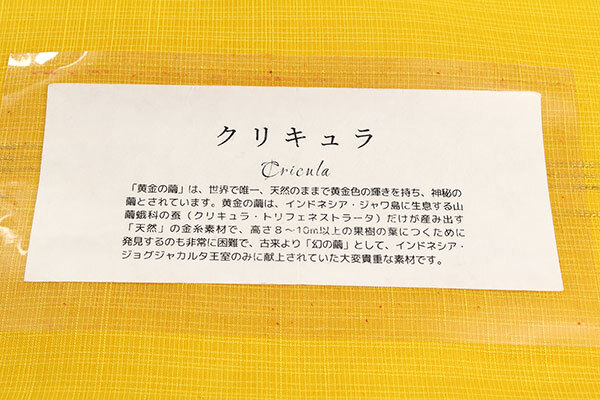 クリキュラ
Cricula
「黄金の繭」は、世界で唯一、天然のままで黄金色の輝きを持ち、神秘の
繭とされています。黄金の繭は、インドネシア・ジャワ島に生息する山
繭蛾科の蚕（クリキュラ・トリフェネストラータ）だけが産み出す
「天然」の金糸素材で、高さ８～10m以上の果樹の葉につくために
発見するのも非常に困難で、古来より「幻の繭」として、インドネシア・
ジョグジャカルタ王室のみに献上されていた大変貴重な素材です。